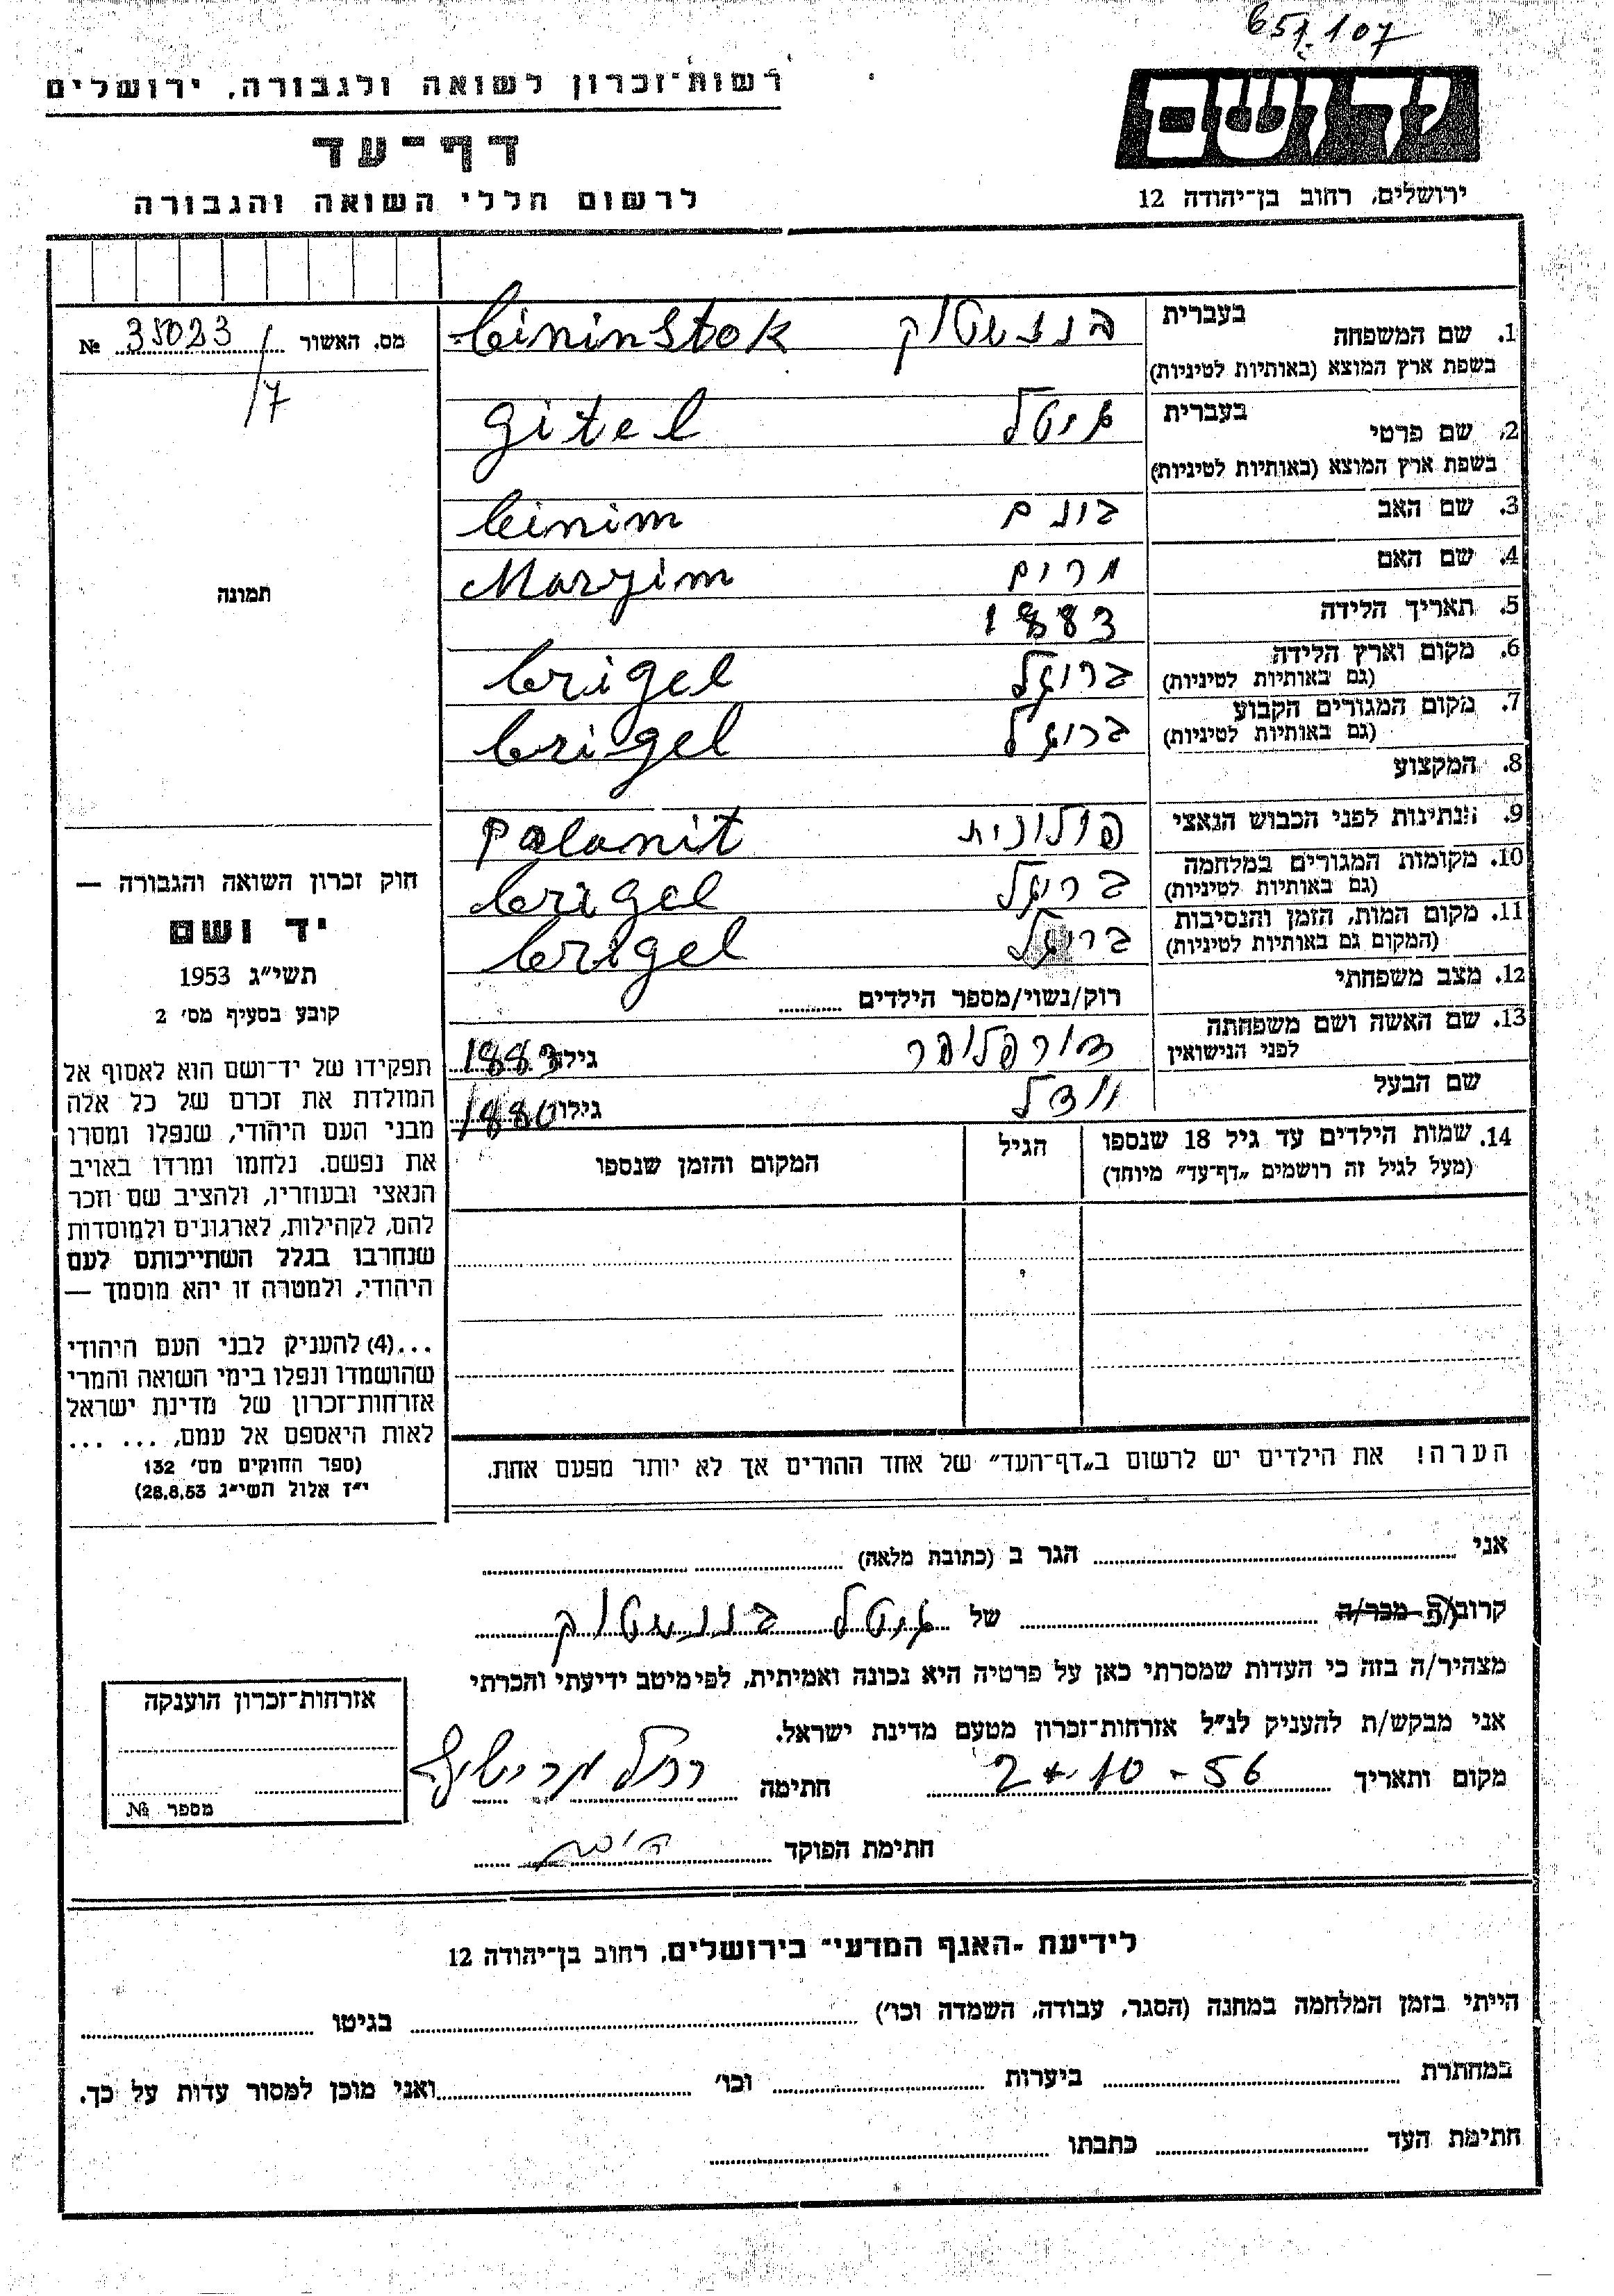 657.107
רשות־זכרון לשואה ולגבורה, ירושלים
דף־עד
לרשום חללי השואה והגבורה
יד ושם
ירושלים, רחוב בן־יהודה 12
מס. האשור 35023 №
/7
תמונה
חוק זכרון השואה והגבורה —
יד ושם
תשי״ג 1953
קובע בסעיף מס׳ 2
תפקידו של יד־ושם הוא לאסוף אל
המולדת את זכרם של כל אלה
מבני העם היהודי, שנפלו ומסרו
את נפשם, נלחמו ומרדו באויב
הנאצי ובעוזריו, ולהציב שם וזכר
להם, לקהילות, לארגונים ולמוסדות
שנחרבו בגלל השתייכותם לעם
היהודי, ולמטרה זו יהא מוסמך —
...(4) להעניק לבני העם היהודי
שהושמדו ונפלו בימי השואה והמרי
אזרחות־זכרון של מדינת ישראל
לאות היאספם אל עמם, ... ...
(ספר החוקים מס׳ 132
י״ז אלול תשי״ג 28.8.53)
1. שם המשפחה בעברית בננשטוק bininstok
בשפת ארץ המוצא (באותיות לטיניות)
2. שם פרטי בעברית גיטל gitel
בשפת ארץ המוצא (באותיות לטיניות)
3. שם האב בונם binim
4. שם האם מרים Maryim
5. תאריך הלידה 1883
6. מקום וארץ הלידה ברוגל brigel
(גם באותיות לטיניות)
7. מקום המגורים הקבוע ברוגל brigel
(גם באותיות לטיניות)
8. המקצוע
9. הנתינות לפני הכבוש הנאצי פולונית Polanit
10. מקומות המגורים במלחמה בריגל brigel
(גם באותיות לטיניות)
11. מקום המות, הזמן והנסיבות בריגל brigel
(המקום גם באותיות לטיניות)
12. מצב משפחתי רוק/נשוי/מספר הילדים
13. שם האשה ושם משפחתה
לפני הנישואין גילה 1883
שם הבעל גילו 1880
14. שמות הילדים עד גיל 18 שנספו הגיל המקום והזמן שנספו
(מעל לגיל זה רושמים „דף־עד״ מיוחד)
הערה! את הילדים יש לרשום ב„דף־העד״ של אחד ההורים אך לא יותר מפעם אחת.
אני הגר ב (כתובת מלאה)
קרוב/ה מכר/ה של גיטל בננשטוק
מצהיר/ה בזה כי העדות שמסרתי כאן על פרטיה היא נכונה ואמיתית, לפי מיטב ידיעתי והכרתי
אני מבקש/ת להעניק לנ״ל אזרחות־זכרון מטעם מדינת ישראל.
מקום ותאריך 2*.10-56 חתימה רחל
חתימת הפוקד
אזרחות־זכרון הוענקה
מספר №
לידיעת ״האגף המדעי״ בירושלים, רחוב בן־יהודה 12
הייתי בזמן המלחמה במחנה (הסגר, עבודה, השמדה וכו׳) בגיטו
במחתרת ביערות וכו׳ ואני מוכן למסור עדות על כך.
חתימת העד כתבתו